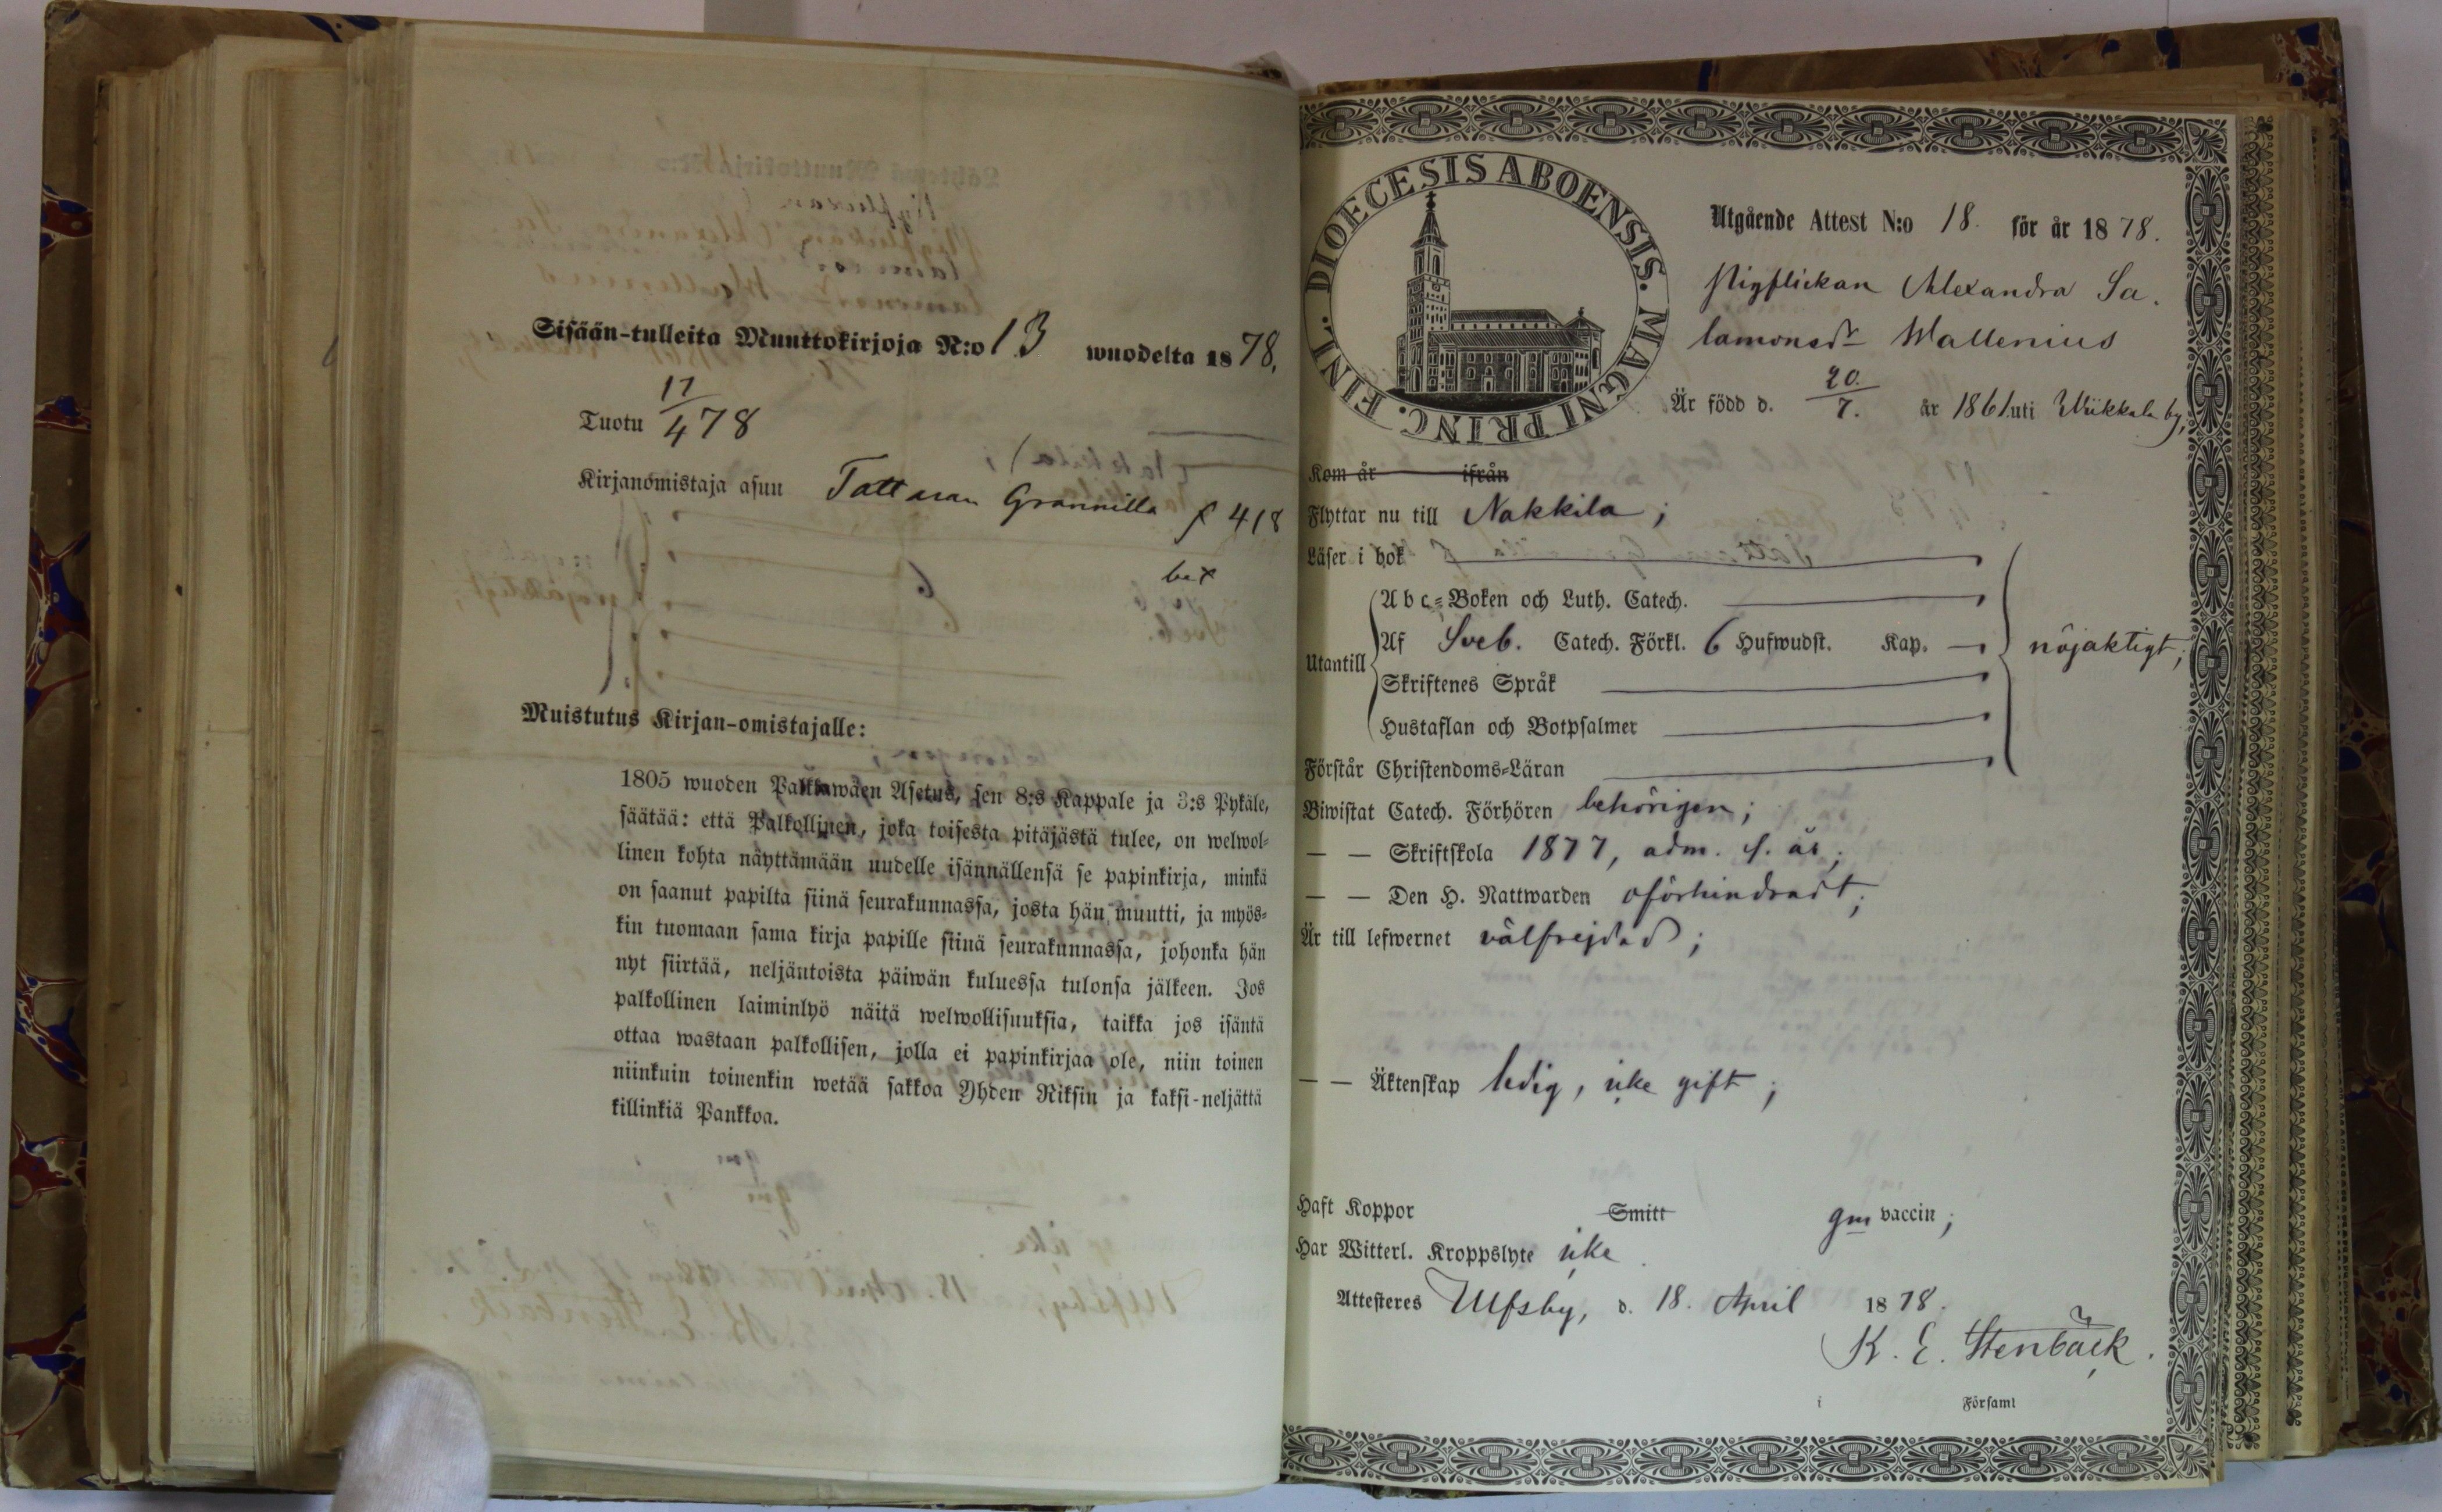 Sisään-tulleita Muuttokirjoja N:o 13 wuodelta 1878.
Tuotu 17/4 78
Kirjanomistaja asuu Tattaran Grannilla f 418
bet
Muistutus Kirjan-omistajalle:
1805 wuoden Palkkawäen Asetus, sen 8:s Kappale ja 3:s Pykäle,
säätää: että Palkollinen, joka toisesta pitäjästä tulee, on welwol-
linen kohta näyttämään uudelle isännällensä se papinkirja, minkä
on saanut papilta siinä seurakunnassa, josta hän muutti, ja myös-
kin tuomaan sama kirja papille siinä seurakunnassa, johonka hän
nyt siirtää, neljäntoista päiwän kuluessa tulonsa jälkeen. Jos
palkollinen laiminlyö näitä welwollisuuksia, taikka jos isäntä
ottaa wastaan palkollisen, jolla ei papinkirjaa ole, niin toinen
niinkuin toinenkin wetää sakkoa Yhden Riksin ja kaksi-neljättä
killinkiä Pankkoa.
DIOECESIS ABOENSIS. MAGNI PRINC. FINL.
Utgående Attest N:o 18. för år 1878.
Pigflickan Alexandra Sa.
lamonsdr Wallenius
Är född d. 20./7. år 1861. uti Wiikkala by,
Kom år ifrån
Flyttar nu till Nakkila;
Läser i bok
Abc-Boken och Luth. Catech.
Utantill Af Sveb. Catech. Förkl. 6 Hufwudst. Kap. nöjaktigt;
Skriftenes Språk
Hustaflan och Botpsalmer
Förstår Christendoms-Läran
Biwistat Catech. Förhören behörigen;
— — Skriftskola 1877, adm. s. år;
— — Den H. Nattwarden oförhindradt;
Är till lefwernet välfrejdad;
— — Äktenskap ledig, icke gift;
Haft Koppor Smitt gm vaccin;
Har Witterl. Kroppslyte icke
Attesteres Ulfsby, d. 18. April 1878.
K. E. Stenbäck.
i Församl